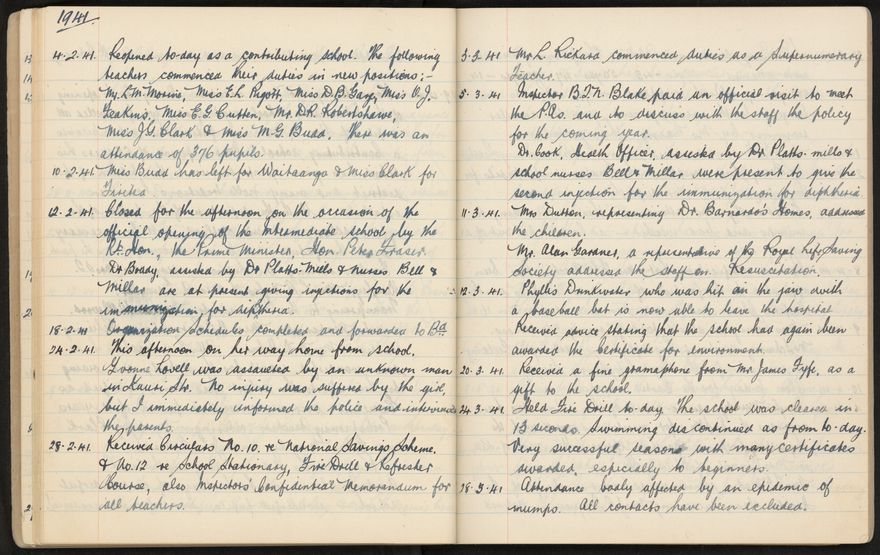 1941.
4.2.41. Reopened to-day as a contributing school. The following
teachers commenced their duties in new positions:-
Mr. L.M. Morine, Miss E.L. Pigott, Miss D.B. Gay, Miss O.J.
Jeakins, Miss E.G. Cutten, Mr. D.R. Robertshawe,
Miss J.G. Clark & Miss M.G. Budd. There was an
attendance of 376 pupils.
10.2.41. Miss Budd has left for Waitaanga & Miss Clark for
12.2.41. Closed for the afternoon on the occasion of the
official opening of the Intermediate school by the
Rt. Hon., the Prime Minister, Hon. Peter Fraser.
Dr Brady, assisted by Dr Platts-Mills & nurses Bell &
Millar are at present giving injections for the
immunization for diptheria.
18.2.41 Organization schedules completed and forwarded to Bd.
24.2.41. This afternoon on her way home from school,
Yvonne Lovell was assaulted by an unknown man
in Kauri Str. No injury was suffered by the girl,
but I immediately informed the police and interviewed
the parents.
28.2.41. Received Circulars No. 10 re National Savings Scheme,
& No. 12 re School Stationary, Fire Drill & Refresher
Course, also Inspectors' Confidential Memorandum for
all teachers.
3.3.41 Mr L. Rickard commenced duties as a Supernumerary
Teacher.
5.3.41 Inspector B.J.N. Blake paid an official visit to meet
the P.As. and to discuss with the staff the policy
for the coming year.
Dr. Cook, Health Officer, assisted by Dr Platts-mills &
school nurses Bell & Millar were present to give the
second injection for the immunization for diptheria.
11.3.41. Mrs Dutton, representing Dr. Barnardo's Homes, addressed
the children.
Mr. Alan Gardner, a representative of the Royal Life Saving
Society addressed the staff on Resuscitation.
12.3.41. Phyllis Drinkwater who was hit on the jaw with
a baseball bat is now able to leave the hospital
Received advice stating that the school had again been
awarded the Certificate for environment.
20.3.41. Received a fine gramophone from Mr. James Fyfe, as a
gift to the school.
24.3.41. Held Fire Drill to-day. The school was cleared in
13 seconds. Swimming discontinued as from to-day.
Very successful season with many certificates
awarded, especially to beginners.
28.3.41 Attendance badly affected by an epidemic of
mumps. All contacts have been excluded.